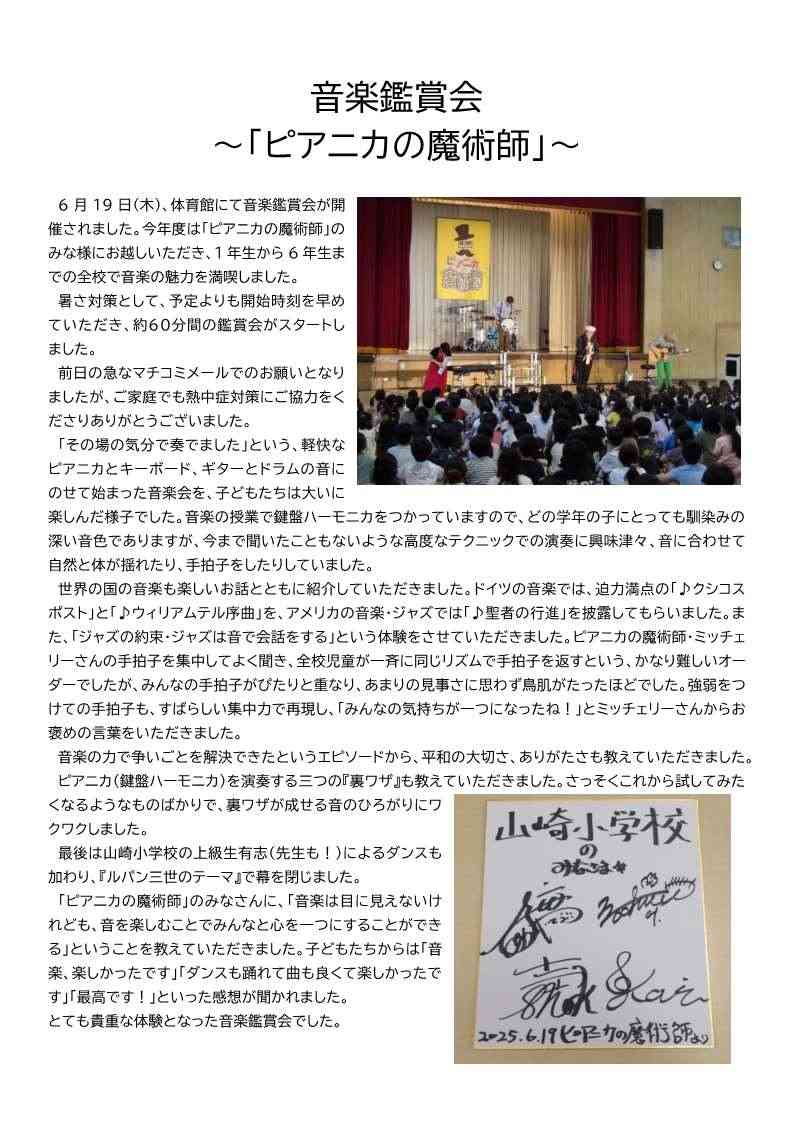 音楽鑑賞会
~「ピアニカの魔術師」~
6月19日(木)、体育館にて音楽鑑賞会が開
催されました。今年度は「ピアニカの魔術師」の
みな様にお越しいただき、1年生から6年生ま
での全校で音楽の魅力を満喫しました。
暑さ対策として、予定よりも開始時刻を早め
ていただき、約60分間の鑑賞会がスタートし
ました。
前日の急なマチコミメールでのお願いとなり
ましたが、ご家庭でも熱中症対策にご協力をく
ださりありがとうございました。
「その場の気分で奏でました」という、軽快な
ピアニカとキーボード、ギターとドラムの音に
のせて始まった音楽会を、子どもたちは大いに
楽しんだ様子でした。音楽の授業で鍵盤ハーモニカをつかっていますので、どの学年の子にとっても馴染みの
深い音色でありますが、今まで聞いたこともないような高度なテクニックでの演奏に興味津々、音に合わせて
自然と体が揺れたり、手拍子をしたりしていました。
世界の国の音楽も楽しいお話とともに紹介していただきました。ドイツの音楽では、迫力満点の「♪クシコス
ポスト」と「♪ウィリアムテル序曲」を、アメリカの音楽・ジャズでは「♪聖者の行進」を披露してもらいました。ま
た、「ジャズの約束・ジャズは音で会話をする」という体験をさせていただきました。ピアニカの魔術師・ミッチェ
リーさんの手拍子を集中してよく聞き、全校児童が一斉に同じリズムで手拍子を返すという、かなり難しいオー
ダーでしたが、みんなの手拍子がぴたりと重なり、あまりの見事さに思わず鳥肌がたったほどでした。強弱をつ
けての手拍子も、すばらしい集中力で再現し、「みんなの気持ちが一つになったね!」とミッチェリーさんからお
褒めの言葉をいただきました。
音楽の力で争いごとを解決できたというエピソードから、平和の大切さ、ありがたさも教えていただきました。
ピアニカ(鍵盤ハーモニカ)を演奏する三つの『裏ワザ』も教えていただきました。さっそくこれから試してみた
くなるようなものばかりで、裏ワザが成せる音のひろがりにワ
クワクしました。
最後は山崎小学校の上級生有志(先生も!)によるダンスも
加わり、『ルパン三世のテーマ』で幕を閉じました。
「ピアニカの魔術師」のみなさんに、「音楽は目に見えないけ
れども、音を楽しむことでみんなと心を一つにすることができ
る」ということを教えていただきました。子どもたちからは「音
楽、楽しかったです」「ダンスも踊れて曲も良くて楽しかったで
す」「最高です!」といった感想が聞かれました。
とても貴重な体験となった音楽鑑賞会でした。
山崎小学校
の
みなさま
2025.6.19 ピアニカの魔術師より